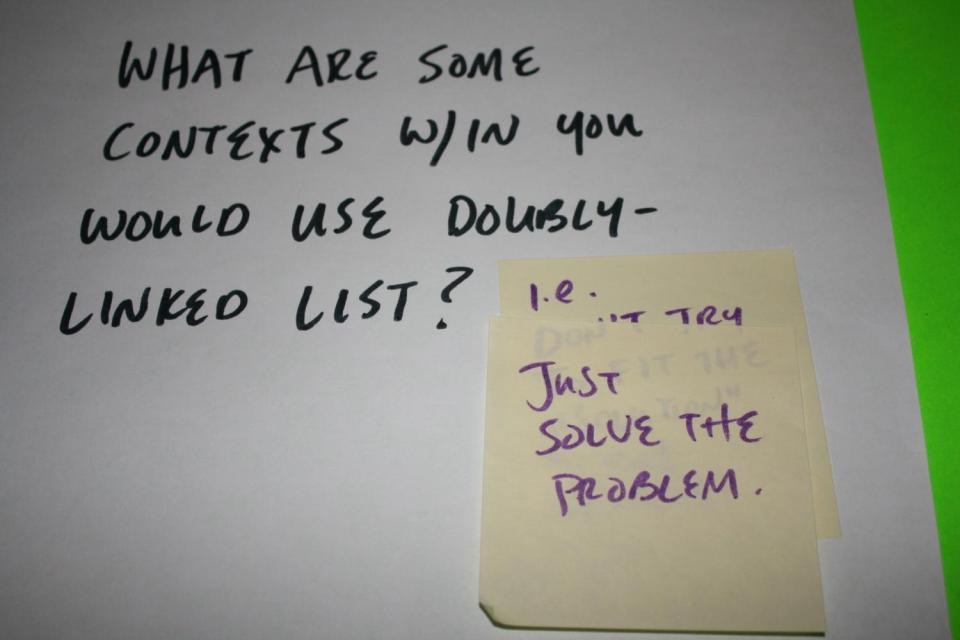 WHAT ARE SOME
CONTEXTS W/IN YOU
WOULD USE DOUBLY-
LINKED LIST?
i.e.
DON'T TRY
FIT THE
JUST
SOLVE THE
PROBLEM.